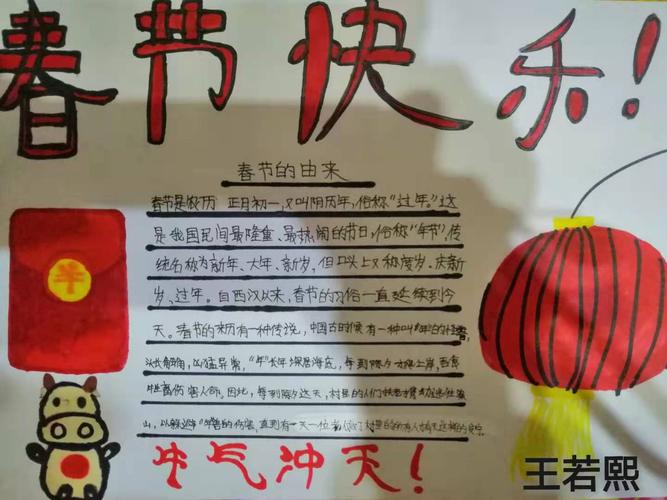 春节快乐!
春节的由来
春节是农历 正月初一,又叫阴历年,俗称“过年”。这
是我国民间最隆重、最热闹的节日,俗称“年节”,传
统名称为新年、大年、新岁,但口头上又称度岁、庆新
岁、过年。自西汉以来,春节的习俗一直延续到今
天。春节的来历有一种传说,中国古时候有一种叫
头长角,凶猛异常,“年”长年深居海底,每到除夕才爬上岸,
伤害人命。因此,每到除夕这天,村里的人们扶老携
山,以躲避 的伤害,直到有一天一位老
牛气冲天!
王若熙